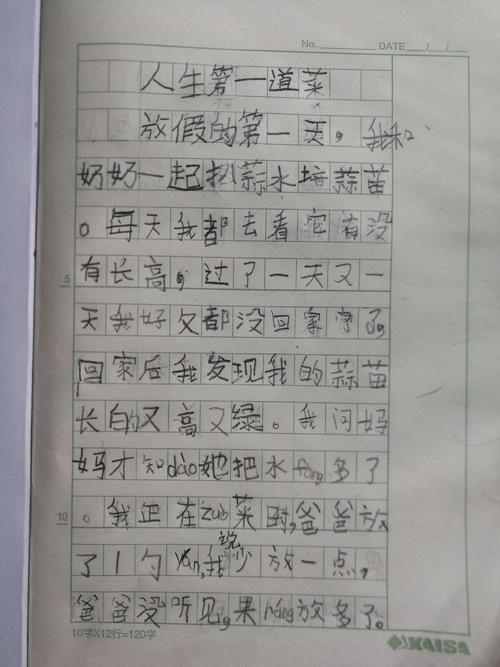 No. DATE / /
人生第一道菜
放假的第一天，我和
奶奶一起扒蒜水培蒜苗
。每天我都去看它有没
5 有长高，过了一天又一
天我好久都没回家了。
回家后我发现我的蒜苗
长的又高又绿。我问妈
妈才知dào她把水fàng多了
10 。我正在zuò菜时，爸爸放
了1勺yán，我说少放一点，
爸爸没听见，果ráng放多了。
10字X12行=120字
KAISA